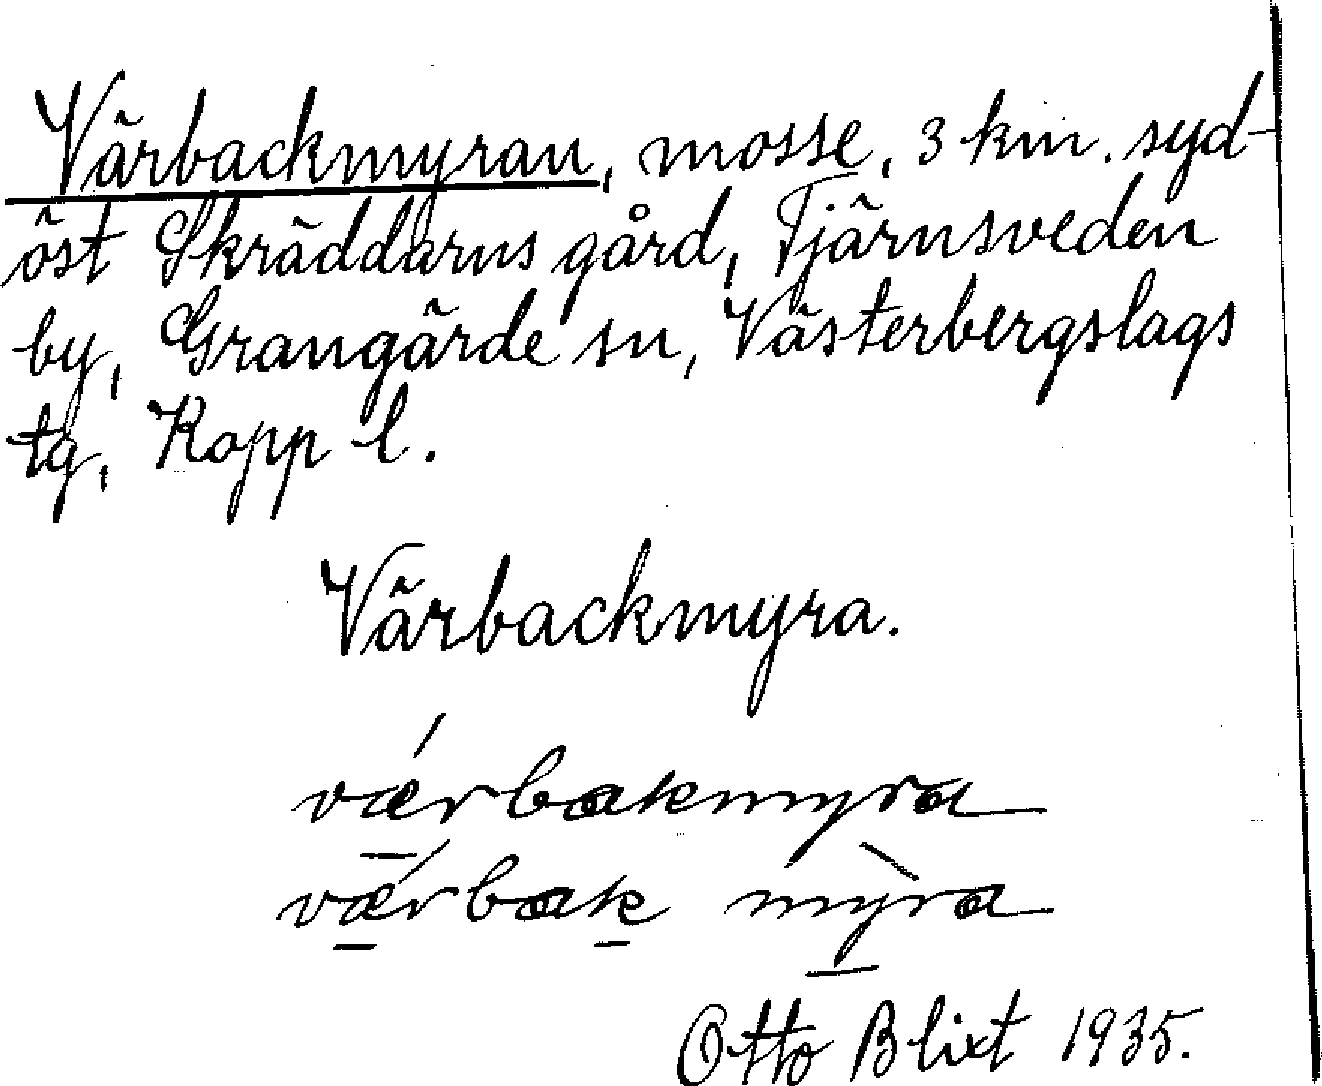 Värbackmyran, mosse, 3 km. syd-
öst Skräddarns gård, Tjärnsveden
by, Grangärde sn, Västerbergslags
tg, Kopp l.
Värbackmyra.
værbakmyra
værbak myra
Otto Blixt 1935.